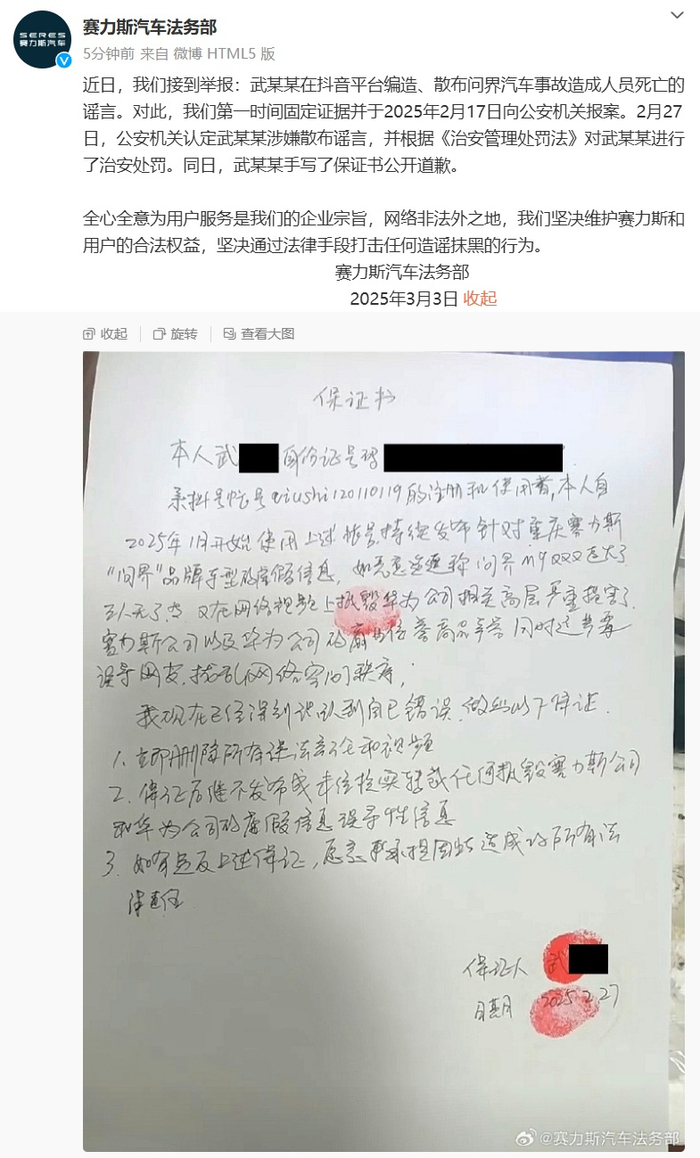 赛力斯汽车法务部
SERES
赛力斯汽车
5分钟前 来自 微博 HTML5 版
近日，我们接到举报：武某某在抖音平台编造、散布问界汽车事故造成人员死亡的
谣言。对此，我们第一时间固定证据并于2025年2月17日向公安机关报案。2月27
日，公安机关认定武某某涉嫌散布谣言，并根据《治安管理处罚法》对武某某进行
了治安处罚。同日，武某某手写了保证书公开道歉。
全心全意为用户服务是我们的企业宗旨，网络非法外之地，我们坚决维护赛力斯和
用户的合法权益，坚决通过法律手段打击任何造谣抹黑的行为。
赛力斯汽车法务部
2025年3月3日 收起
收起 旋转 查看大图
保证书
本人武 身份证号码
系抖号帐号qiushi120110119的注册和使用者,本人自
2025年1月开始使用上述帐号持续发布针对重庆赛力斯
"问界"品牌车型的虚假信息，如恶意造谣称问界m9
又在网络视频上抵毁华为公司相关高层严重损害了
赛力斯公司以及华为公司的商业信誉商品声誉同时这些
误导网友,扰乱网络空间秩序;
我现在已经深刻认识到自己错误.做出以下保证.
1.立即删除所有违法言论和视频
2.保证后继不发布或未经核实转载任何抵毁赛力斯公司
和华为公司的虚假信息误导性信息
3.如有违反上述保证,愿意承担因此造成的所有法
律责任
保证人 武
日期 2025 2 27
@赛力斯汽车法务部